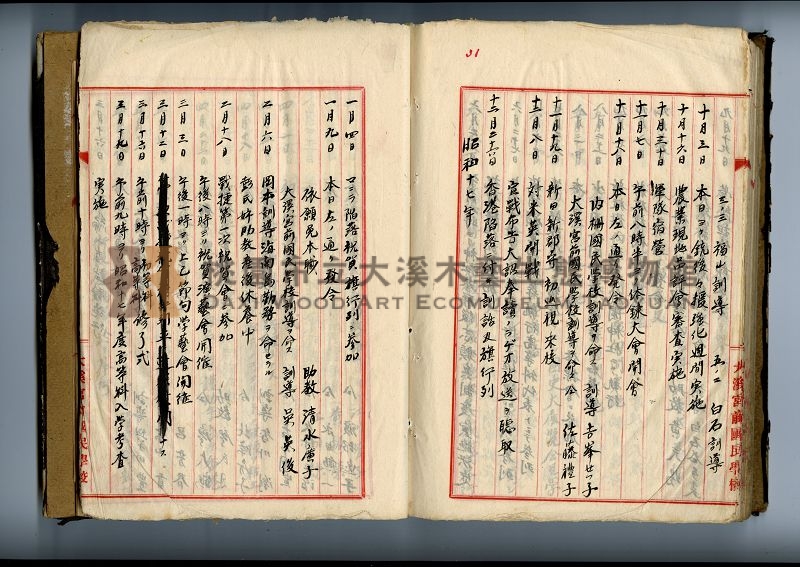 31
三ノ三 福山訓導 五ノ二 白石訓導
十月三日 本日ヨリ銃後ノ擴強化週間実施
十月十六日 農業現地品評會審査実施
十月三十日 軍隊宿営
十一月七日 午前八時半 體錬大會開會
十一月八日 本日左ノ通発令
内柵國民学校訓導ヲ命ス 訓導 吉峯せつ子
大溪宮前國民学校訓導ヲ命ス 仝 佐藤禮子
十一月十九日 新田新郡守初巡視来校
十二月八日 対米英開戦
宣戦布告大詔奉讀ノラヂオ放送ヲ聴取
十二月二十六日 香港陥落ニ付訓話及旗行列
昭和十七年
大溪宮前國民學校
一月四日 マニラ陥落祝賀旗行列ニ参加
一月九日 本日左ノ通リ発令
依願免本職 助教 清水庚子
大溪宮前國民学校訓導ヲ命ス 訓導 吳英俊
二月六日 岡本訓導海南島勤務ヲ命セラル
彭氏好助教産後休養中
二月十八日 戦捷第一次祝賀會ニ参加
午後八時ヨリ祝賀演藝會開催
三月三日 午後一時ヨリ上巳節句学藝會開催
三月十二日
三月十六日 午前十時ヨリ 初等科 高等科 修了式
三月十九日 午前九時ヨリ昭和十七年度高等科入学考査
実施
大溪宮前國民學校
桃園市立大溪木藝生態博物館
DAXI WOOD ART ECOMUSEUM, TAOYUAN